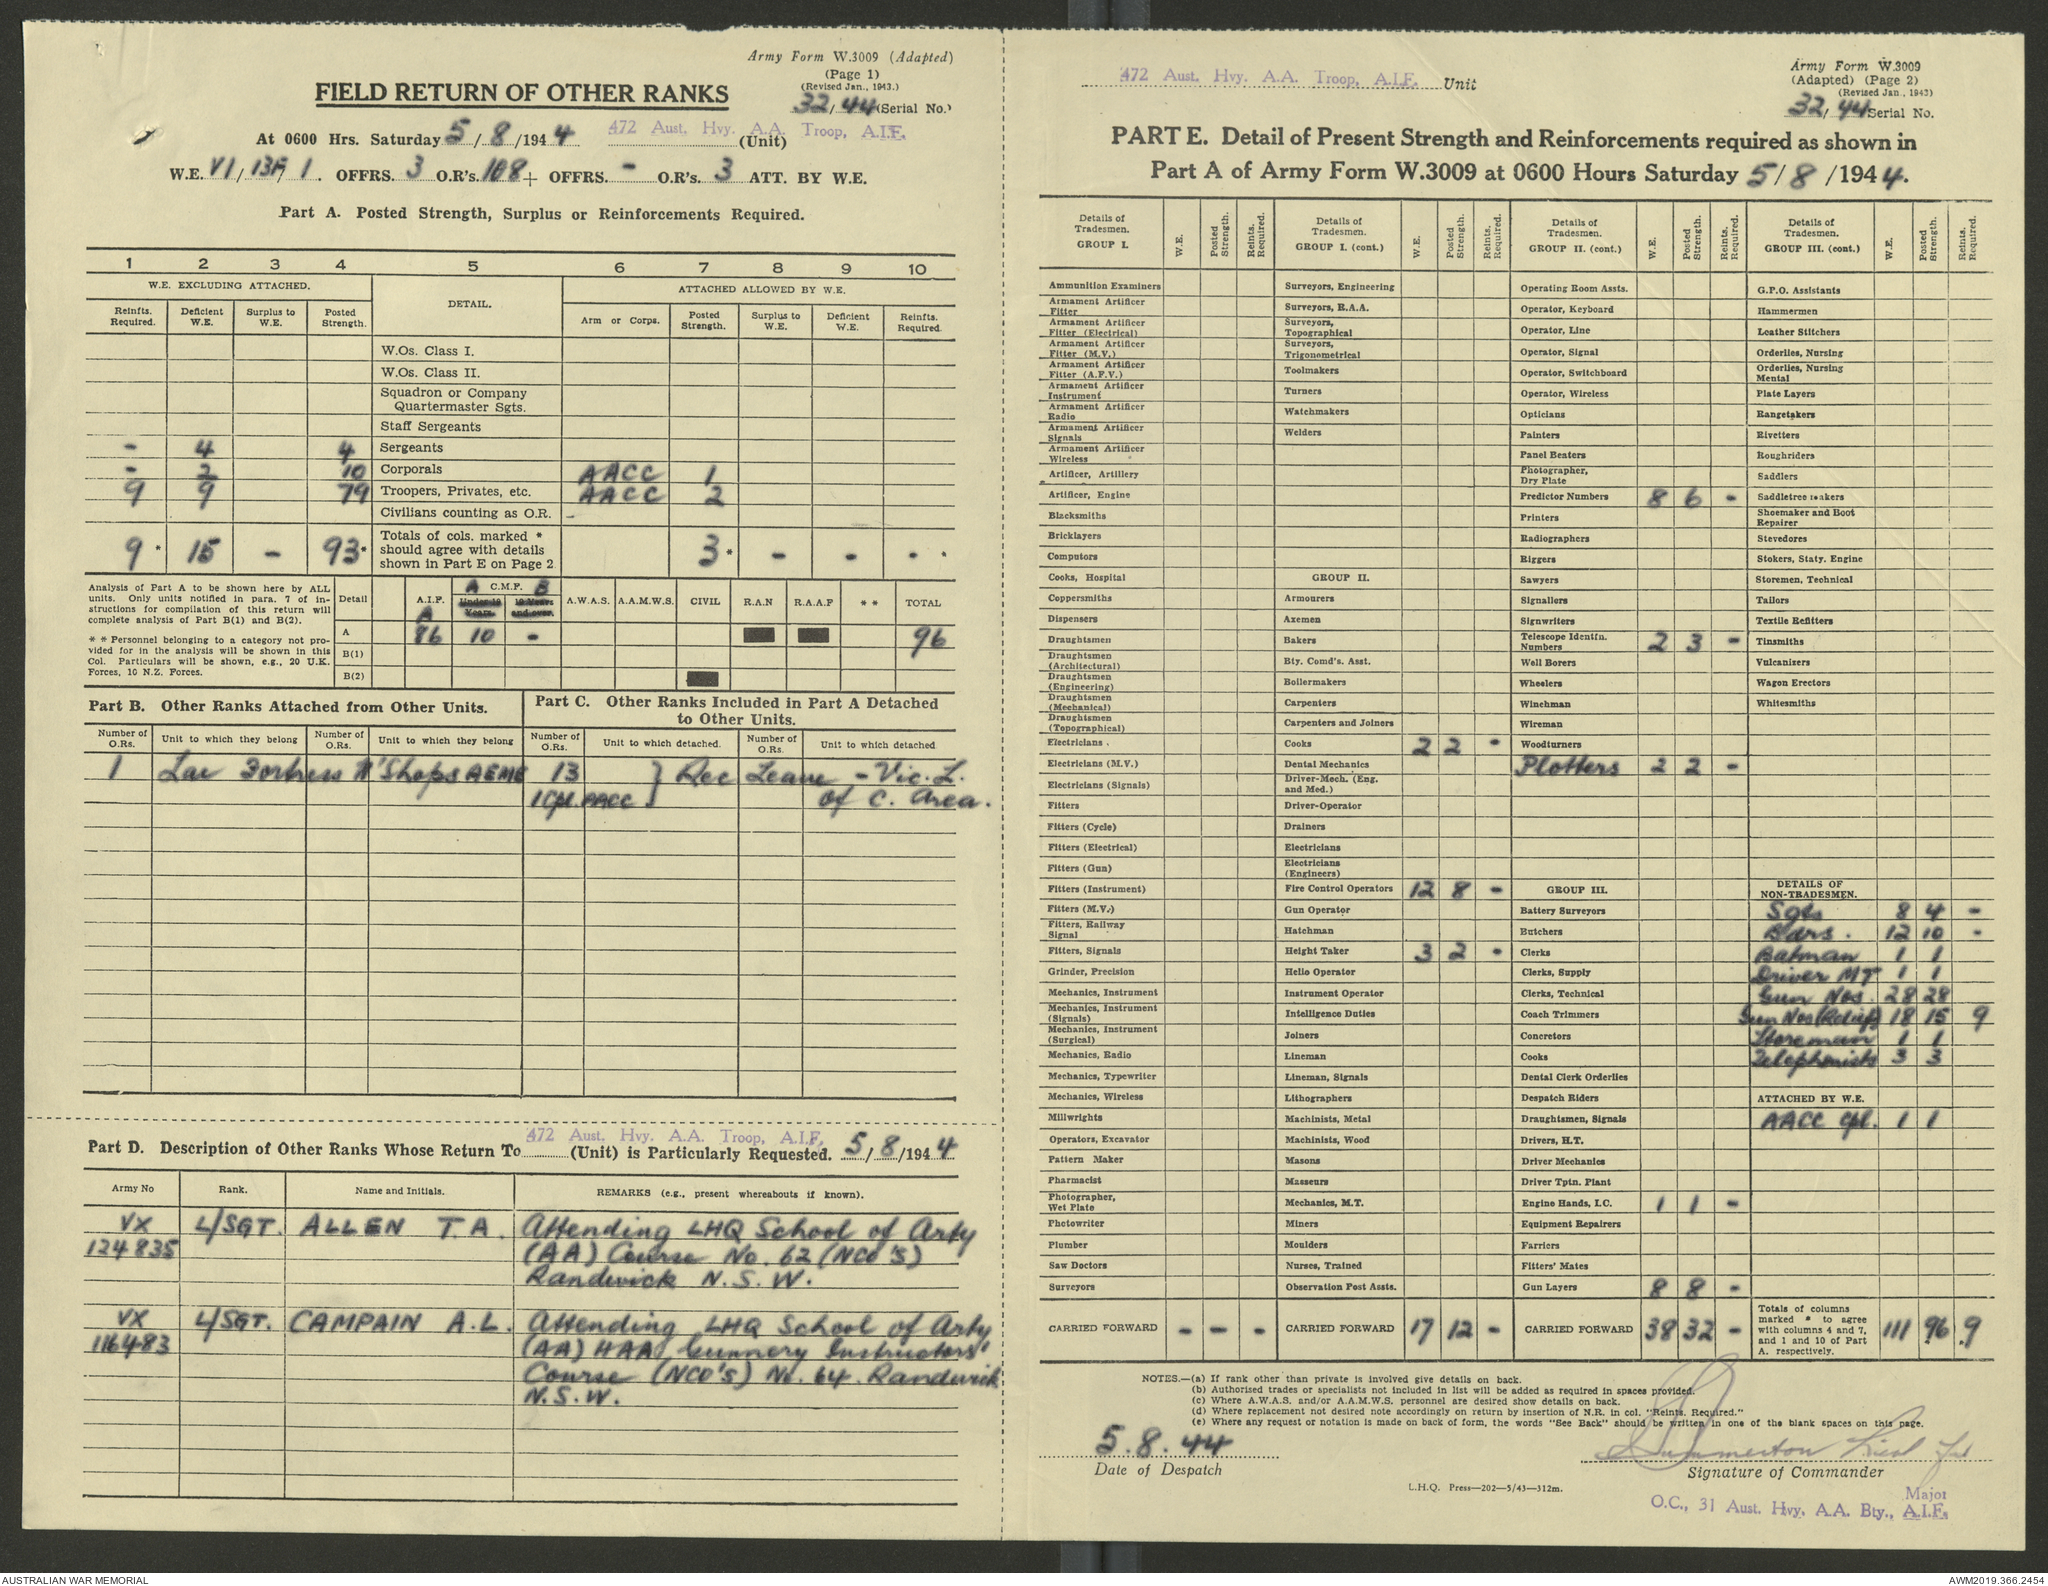 Army Form W.3009 (Adapted)
(Page 1)
(Revised Jan., 1943.)
32/44 (Serial No.)
FIELD RETURN OF OTHER RANKS
At 0600 Hrs. Saturday 5/8/1944 472 Aust. Hvy. A.A. Troop, A.I.F. (Unit)
W.E. VI/13F/1. OFFRS. 3 O.R's. 108 + OFFRS. - O.R's. 3 ATT. BY W.E.
Part A. Posted Strength, Surplus or Reinforcements Required.
1 2 3 4 5 6 7 8 9 10
W.E. EXCLUDING ATTACHED. DETAIL. ATTACHED ALLOWED BY W.E.
Reinfts. Required. Deficient W.E. Surplus to W.E. Posted Strength. Arm or Corps. Posted Strength. Surplus to W.E. Deficient W.E. Reinfts. Required.
W.Os. Class I.
W.Os. Class II.
Squadron or Company
Quartermaster Sgts.
Staff Sergeants
- 4 4 Sergeants
- 2 10 Corporals AACC 1
9 9 79 Troopers, Privates, etc. AACC 2
Civilians counting as O.R.
9 * 15 - 93 * Totals of cols. marked * should agree with details shown in Part E on Page 2 3 * - - - *
Analysis of Part A to be shown here by ALL
units. Only units notified in para. 7 of in-
structions for compilation of this return will
complete analysis of Part B(1) and B(2).
* * Personnel belonging to a category not pro-
vided for in the analysis will be shown in this
Col. Particulars will be shown, e.g., 20 U.K.
Forces, 10 N.Z. Forces.
Detail A.I.F. A A C.M.F. B A.W.A.S. A.A.M.W.S. CIVIL R.A.N R.A.A.F * * TOTAL
Under 19 Years. 19 Years and over.
A 86 10 - 96
B(1)
B(2)
Part B. Other Ranks Attached from Other Units.
Part C. Other Ranks Included in Part A Detached
to Other Units.
Number of O.Rs. Unit to which they belong Number of O.Rs. Unit to which they belong Number of O.Rs. Unit to which detached. Number of O.Rs. Unit to which detached
1 Lae Fortress W'Shops AEME 13 } Rec Leave - Vic. L.
1 Cpl. AACC of C. Area.
Part D. Description of Other Ranks Whose Return To 472 Aust. Hvy. A.A. Troop, A.I.F. (Unit) is Particularly Requested. 5/8/1944
Army No Rank. Name and Initials. REMARKS (e.g., present whereabouts if known).
VX L/SGT. ALLEN T.A. Attending LHQ School of Arty
124835 (AA) Course No. 62 (NCO'S)
Randwick N.S.W.
VX L/SGT. CAMPAIN A.L. Attending LHQ School of Arty
116483 (AA) HAA Gunnery Instructors'
Course (NCO'S) No. 64. Randwick
N.S.W.
472 Aust. Hvy. A.A. Troop, A.I.F. Unit
Army Form W.3009
(Adapted) (Page 2)
(Revised Jan., 1943)
32/44 Serial No.
PART E. Detail of Present Strength and Reinforcements required as shown in
Part A of Army Form W.3009 at 0600 Hours Saturday 5/8/1944.
Details of Tradesmen. GROUP I. W.E. Posted Strength. Reints. Required.
Ammunition Examiners
Armament Artificer Fitter
Armament Artificer Fitter (Electrical)
Armament Artificer Fitter (M.V.)
Armament Artificer Fitter (A.F.V.)
Armament Artificer Instrument
Armament Artificer Radio
Armament Artificer Signals
Armament Artificer Wireless
Artificer, Artillery
Artificer, Engine
Blacksmiths
Bricklayers
Computors
Cooks, Hospital
Coppersmiths
Dispensers
Draughtsmen
Draughtsmen (Architectural)
Draughtsmen (Engineering)
Draughtsmen (Mechanical)
Draughtsmen (Topographical)
Electricians .
Electricians (M.V.)
Electricians (Signals)
Fitters
Fitters (Cycle)
Fitters (Electrical)
Fitters (Gun)
Fitters (Instrument)
Fitters (M.V.)
Fitters, Railway Signal
Fitters, Signals
Grinder, Precision
Mechanics, Instrument
Mechanics, Instrument (Signals)
Mechanics, Instrument (Surgical)
Mechanics, Radio
Mechanics, Typewriter
Mechanics, Wireless
Millwrights
Operators, Excavator
Pattern Maker
Pharmacist
Photographer, Wet Plate
Photowriter
Plumber
Saw Doctors
Surveyors
CARRIED FORWARD - - -
Details of Tradesmen. GROUP I. (cont.) W.E. Posted Strength. Reints. Required.
Surveyors, Engineering
Surveyors, R.A.A.
Surveyors, Topographical
Surveyors, Trigonometrical
Toolmakers
Turners
Watchmakers
Welders
GROUP II.
Armourers
Axemen
Bakers
Bty. Comd's. Asst.
Boilermakers
Carpenters
Carpenters and Joiners
Cooks 2 2 -
Dental Mechanics
Driver-Mech. (Eng. and Med.)
Driver-Operator
Drainers
Electricians
Electricians (Engineers)
Fire Control Operators 12 8 -
Gun Operator
Hatchman
Height Taker 3 2 -
Helio Operator
Instrument Operator
Intelligence Duties
Joiners
Lineman
Lineman, Signals
Lithographers
Machinists, Metal
Machinists, Wood
Masons
Masseurs
Mechanics, M.T.
Miners
Moulders
Nurses, Trained
Observation Post Assts.
CARRIED FORWARD 17 12 -
Details of Tradesmen. GROUP II. (cont.) W.E. Posted Strength. Reints. Required.
Operating Room Assts.
Operator, Keyboard
Operator, Line
Operator, Signal
Operator, Switchboard
Operator, Wireless
Opticians
Painters
Panel Beaters
Photographer, Dry Plate
Predictor Numbers 8 6 -
Printers
Radiographers
Riggers
Sawyers
Signallers
Signwriters
Telescope Identfn. Numbers 2 3 -
Well Borers
Wheelers
Winchman
Wireman
Woodturners
Plotters 2 2 -
GROUP III.
Battery Surveyors
Butchers
Clerks
Clerks, Supply
Clerks, Technical
Coach Trimmers
Concretors
Cooks
Dental Clerk Orderlies
Despatch Riders
Draughtsmen, Signals
Drivers, H.T.
Driver Mechanics
Driver Tptn. Plant
Engine Hands, I.C. 1 1 -
Equipment Repairers
Farriers
Fitters' Mates
Gun Layers 8 8 -
CARRIED FORWARD 38 32 -
Details of Tradesmen. GROUP III. (cont.) W.E. Posted Strength. Reints. Required.
G.P.O. Assistants
Hammermen
Leather Stitchers
Orderlies, Nursing
Orderlies, Nursing Mental
Plate Layers
Rangetakers
Rivetters
Roughriders
Saddlers
Saddletree makers
Shoemaker and Boot Repairer
Stevedores
Stokers, Staty. Engine
Storemen, Technical
Tailors
Textile Refitters
Tinsmiths
Vulcanizers
Wagon Erectors
Whitesmiths
DETAILS OF NON-TRADESMEN.
Sgts 8 4 -
Bdrs. 12 10 -
Batman 1 1
Driver MT 1 1
Gun Nos. 28 28
Gun Nos (Relief) 18 15 9
Storeman 1 1
Telephonists 3 3
ATTACHED BY W.E.
AACC Cpl. 1 1
Totals of columns marked * to agree with columns 4 and 7, and 1 and 10 of Part A. respectively. 111 96 9
NOTES.—(a) If rank other than private is involved give details on back.
(b) Authorised trades or specialists not included in list will be added as required in spaces provided.
(c) Where A.W.A.S. and/or A.A.M.W.S. personnel are desired show details on back.
(d) Where replacement not desired note accordingly on return by insertion of N.R. in col. "Reints. Required."
(e) Where any request or notation is made on back of form, the words "See Back" should be written in one of the blank spaces on this page.
5.8.44
Date of Despatch
Signature of Commander
L.H.Q. Press—202—5/43—312m.
Major
O.C., 31 Aust. Hvy. A.A. Bty., A.I.F.
AUSTRALIAN WAR MEMORIAL
AWM2019.366.2454